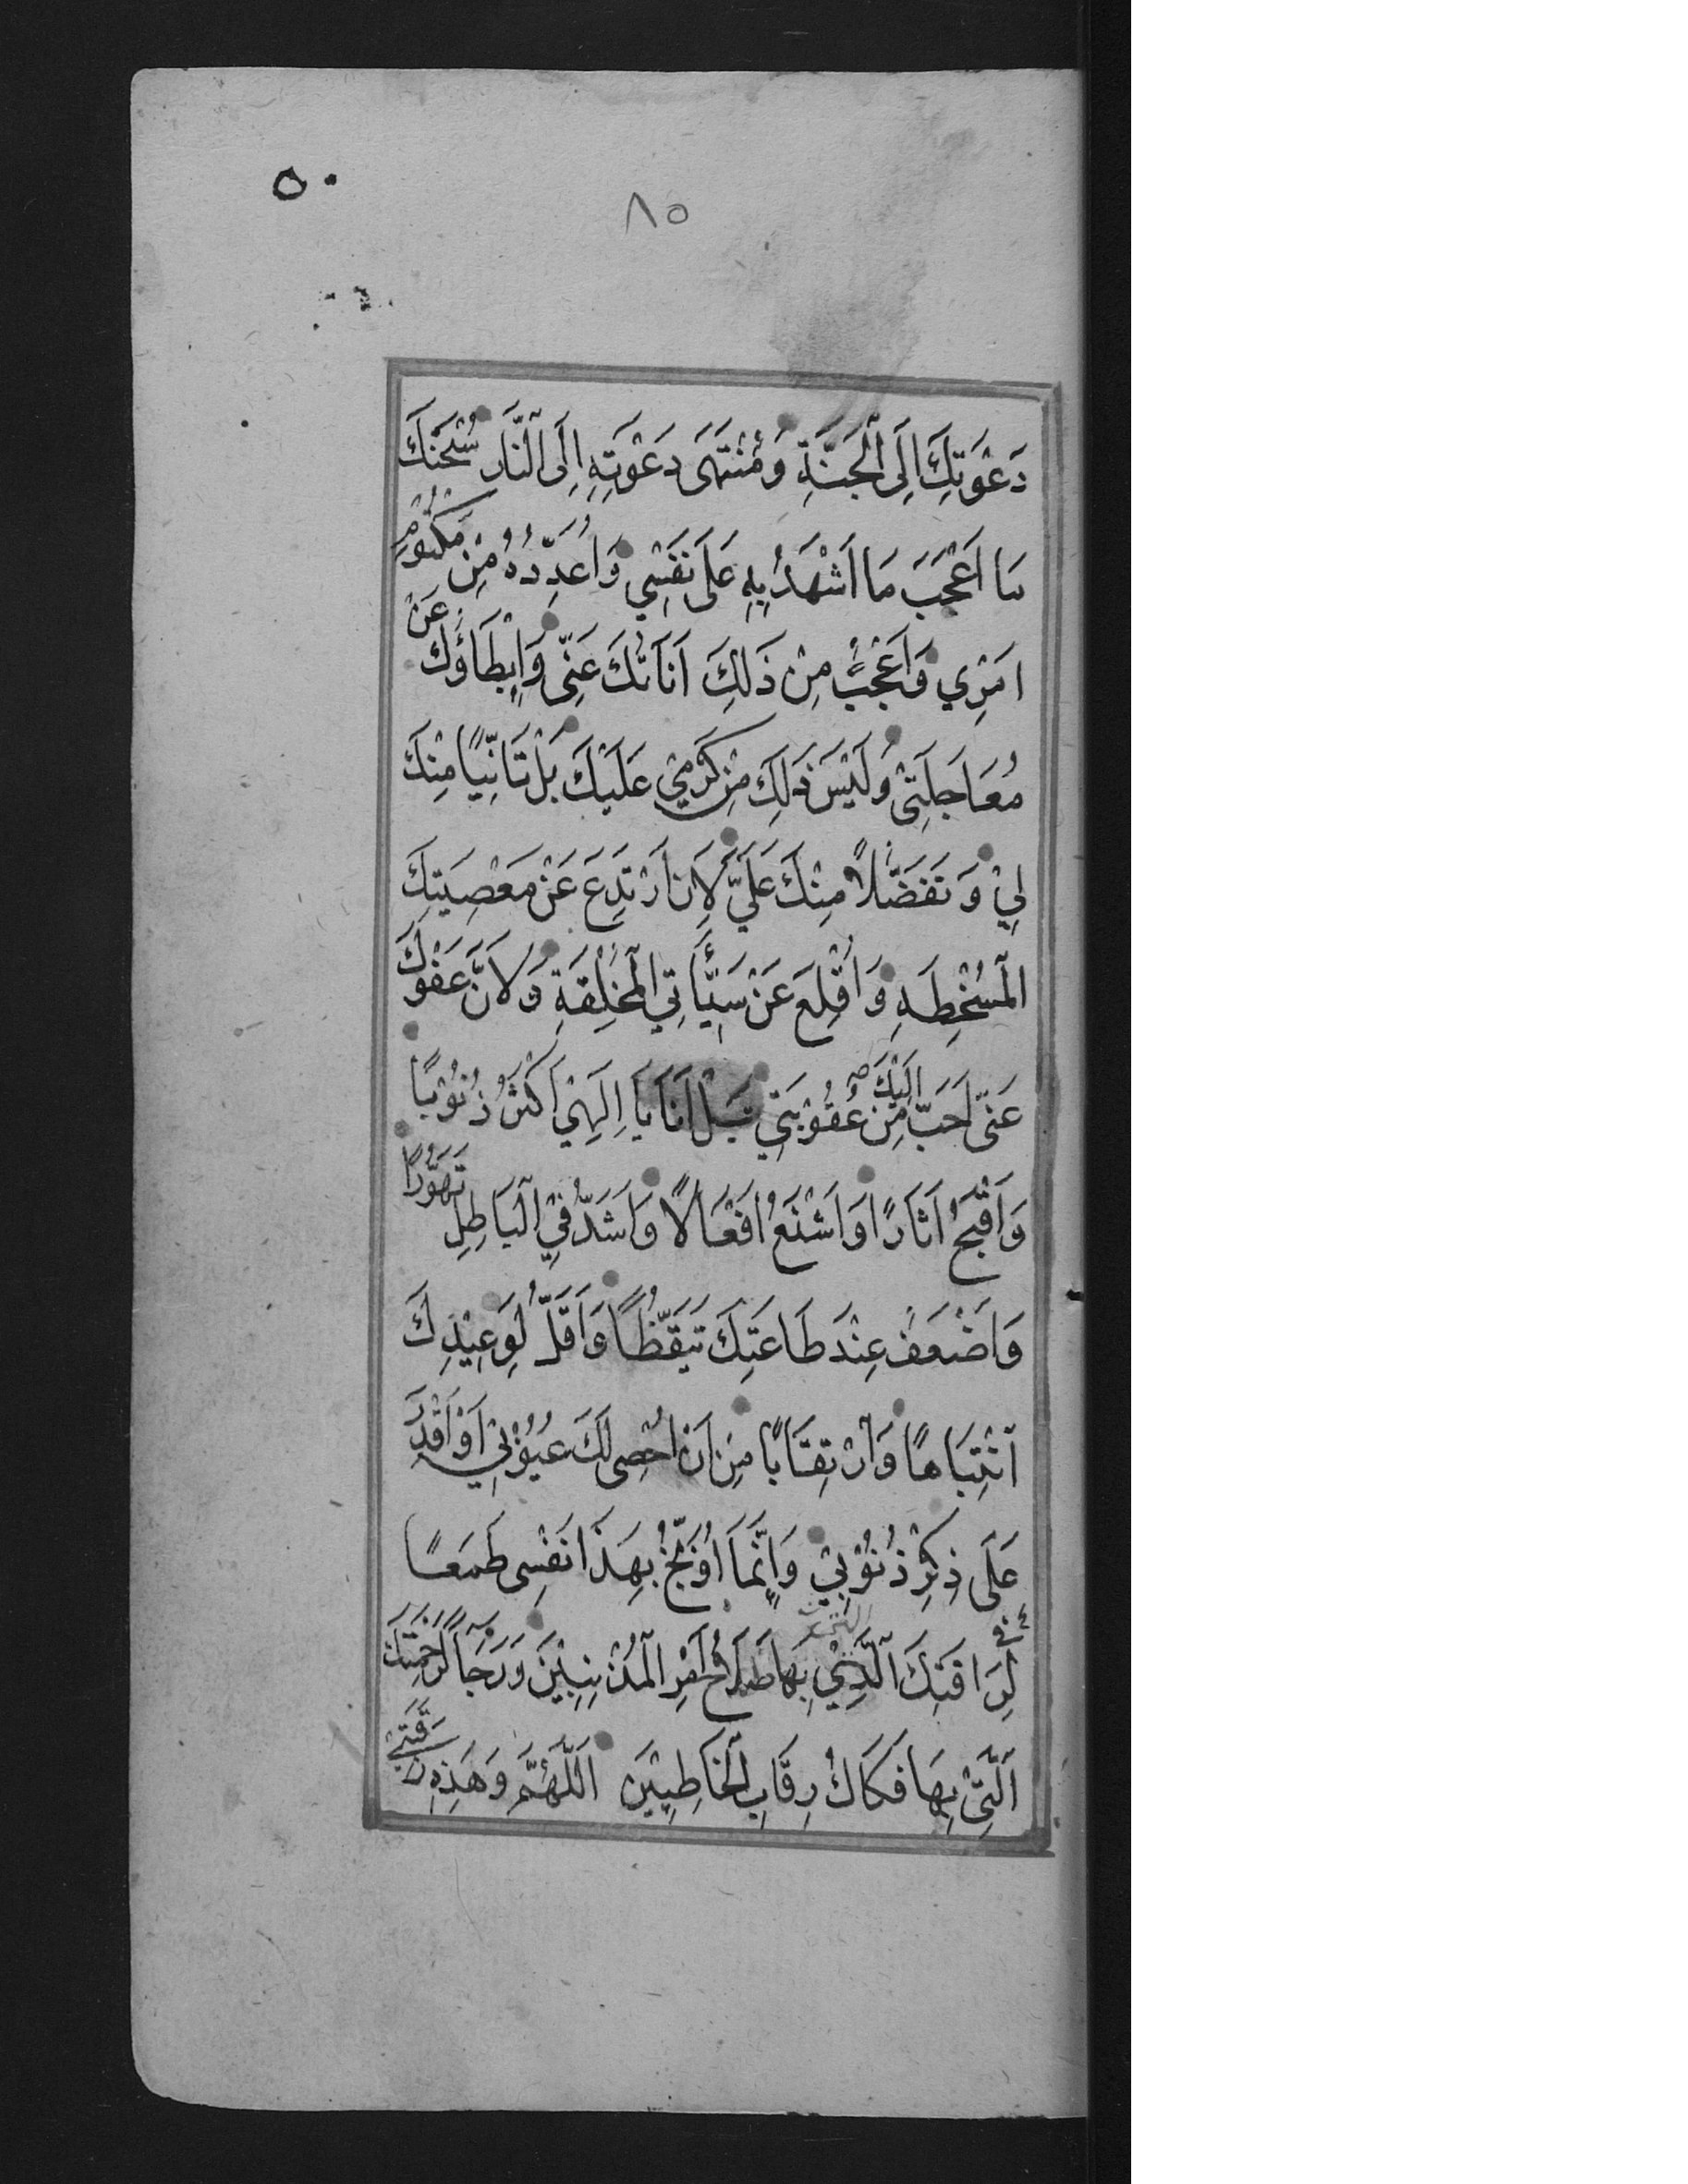 ٥٠
٨٥
دَعْوَتِكَ اِلَى الْجَنَّةِ وَمُنْتَهَى دَعْوَتِهِ اِلَى النَّارِ سُبْحَنَكَ
مَا اَعْجَبَ مَا اَشْهَدُ بِهِ عَلَى نَفْسِي وَاُعَدِّدُهُ مِنْ مَكْتُوْمِ
اَمْرِي وَاَعْجَبُ مِنْ ذَلِكَ اَنَاتُكَ عَنِّى وَاِبْطَاؤُكَ عَنْ
مُعَاجَلَتِىْ وَلَيْسَ ذَلِكَ مِنْ كَرَمِيْ عَلَيْكَ بَلْ تَاَنِّيًا مِنْكَ
لِيْ وَتَفَضُّلاً مِنْكَ عَلَيَّ لِاَنْ اَرْتَدِعَ عَنْ مَعْصِيَتِكَ
الْمُسْخِطَةِ وَاُقْلِعَ عَنْ سَيِّئَاتِي الْمُخْلِقَةِ وَلِاَنَّ عَفْوَكَ
عَنِّى اَحَبُّ اِلَيْكَ مِنْ عُقُوْبَتِي بَلْ اَنَا يَا اِلَهِيْ اَكْثَرُ ذُنُوْبًا
وَاَقْبَحُ اَثَارًا وَاَشْنَعُ اَفْعَالاً وَاَشَدُّ فِي الْبَاطِلِ تَهَوُّرًا
وَاَضْعَفُ عِنْدَ طَاعَتِكَ تَيَقُّظًا وَاَقَلُّ لِوَعِيْدِكَ
انْتِبَاهًا وَارْتِقَابًا مِنْ اَنْ اُحْصِىَ لَكَ عُيُوْبِيْ اَوْ اَقْدِرَ
عَلَى ذِكْرِ ذُنُوْبِيْ وَاِنَّمَا اُوَبِّخُ بِهَذَا نَفْسِى طَمَعًا
فِي رَافَتِكَ الَّتِيْ بِهَا صَلاَحُ اَمْرِ الْمُذْنِبِيْنَ وَرَجَاءً لِرَحْمَتِكَ
الَّتِيْ بِهَا فَكَاكُ رِقَابِ الْخَاطِئِيْنَ اَللَّهُمَّ وَهَذِهِ رَقَبَتِيْ